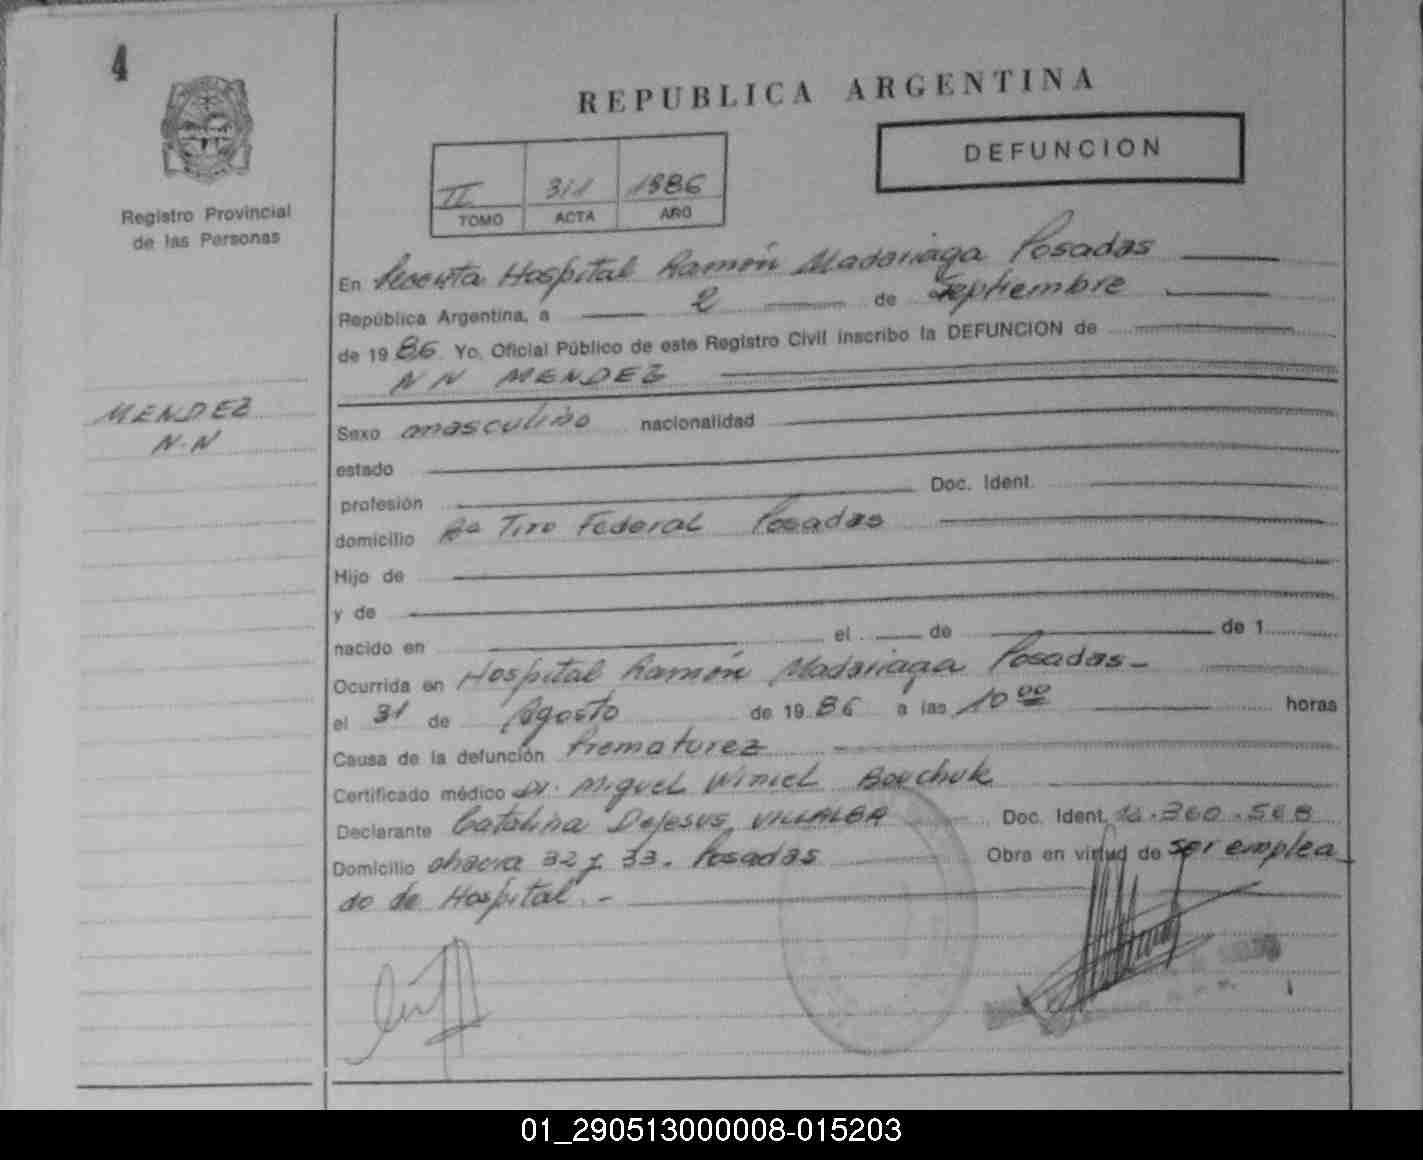 4
REPUBLICA ARGENTINA
DEFUNCION
II 311 1986
TOMO ACTA AÑO
Registro Provincial
de las Personas
En Hospital Ramón Madariaga Posadas
República Argentina, a 2 de Septiembre
de 1986 Yo, Oficial Público de este Registro Civil inscribo la DEFUNCION de
NN MENDEZ
MENDEZ
N.N
Sexo masculino nacionalidad
estado
profesión Doc. Ident.
domicilio Bº Tiro Federal Posadas
Hijo de
y de
nacido en el de de 1
Ocurrida en Hospital Ramón Madariaga Posadas-
el 31 de Agosto de 1986 a las 10 00 horas
Causa de la defunción Prematurez
Certificado médico Dr. Miguel
Declarante Catalina Dejesus VILLALBA Doc. Ident. .360.568
Domicilio chacra 32 y 33. Posadas Obra en virtud de ser emplea
do de Hospital.-
01_290513000008-015203